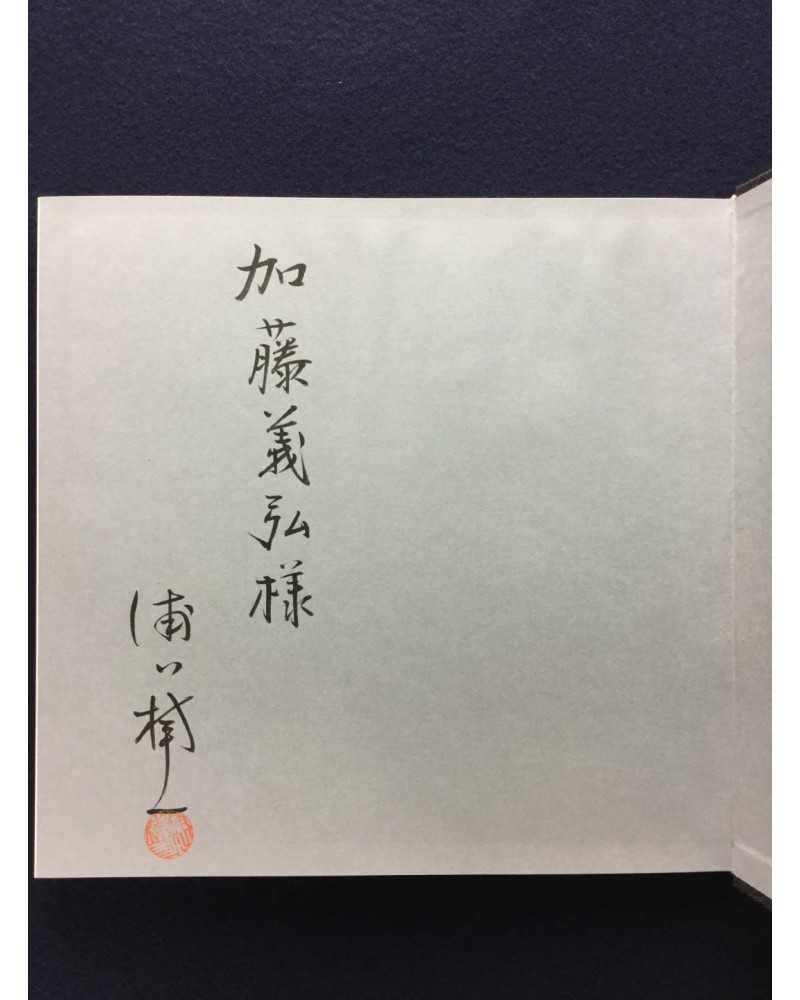 加藤義弘様
浦口楠一